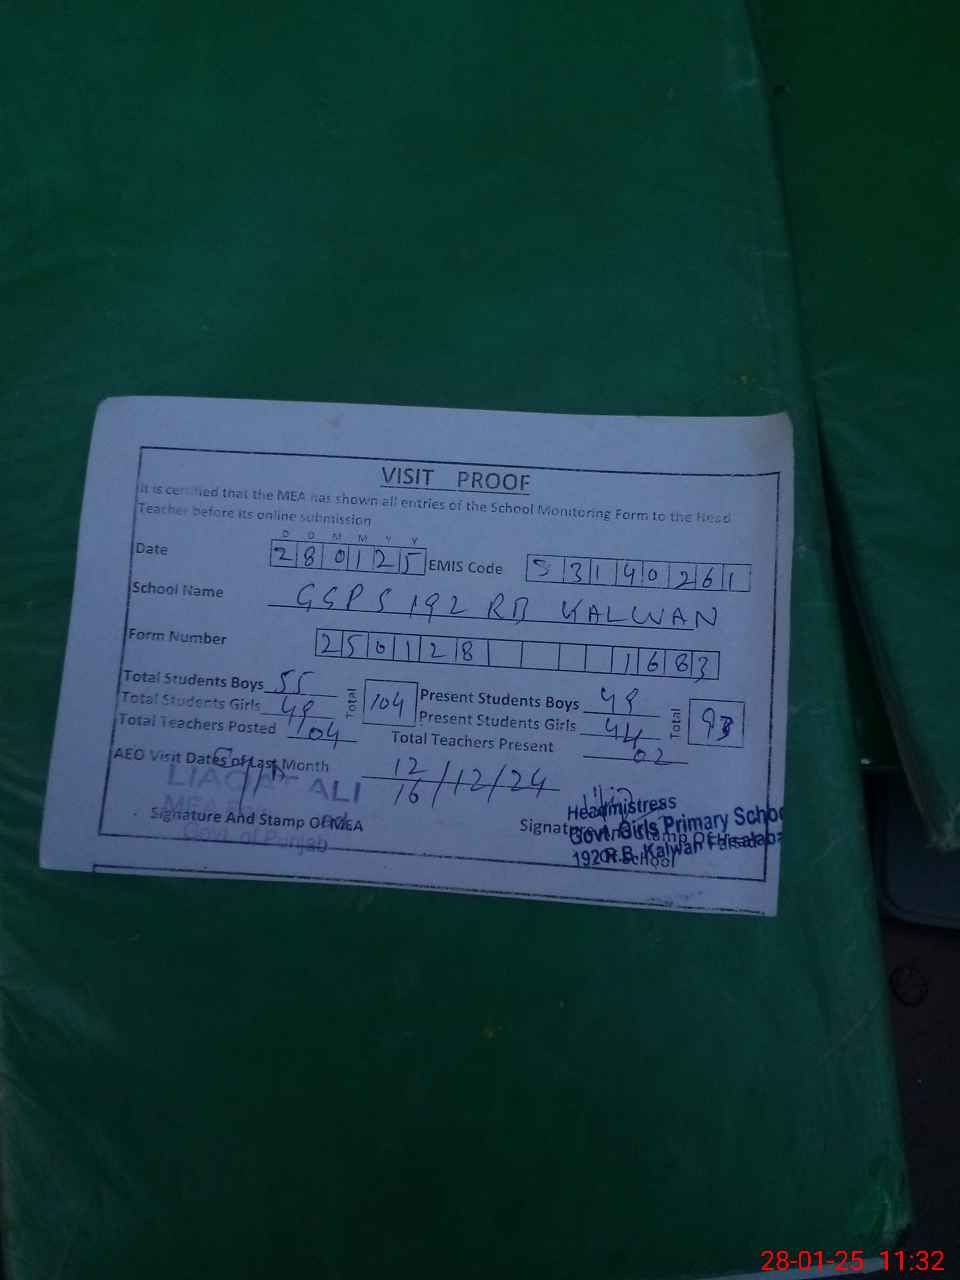 VISIT PROOF
It is certified that the MEA has shown all entries of the School Monitoring Form to the Head
Teacher before its online submission
D D M M Y Y
Date 280125 EMIS Code 53140261
School Name GGPS 192 RB KALWAN
Form Number 250128 1683
Total Students Boys 55 Total 104 Present Students Boys 49 Total 93
Total Students Girls 49 Present Students Girls 44
Total Teachers Posted 04 Total Teachers Present 02
AEO Visit Dates of Last Month 12/16/12/24
LIAQAT ALI
MEA
Govt. of Punjab
Signature And Stamp Of MEA
Headmistress
Govt. Girls Primary School
192 R.B. Kalwan Faisalabad
Signature And Stamp Of Head
Of School
28-01-25 11:32